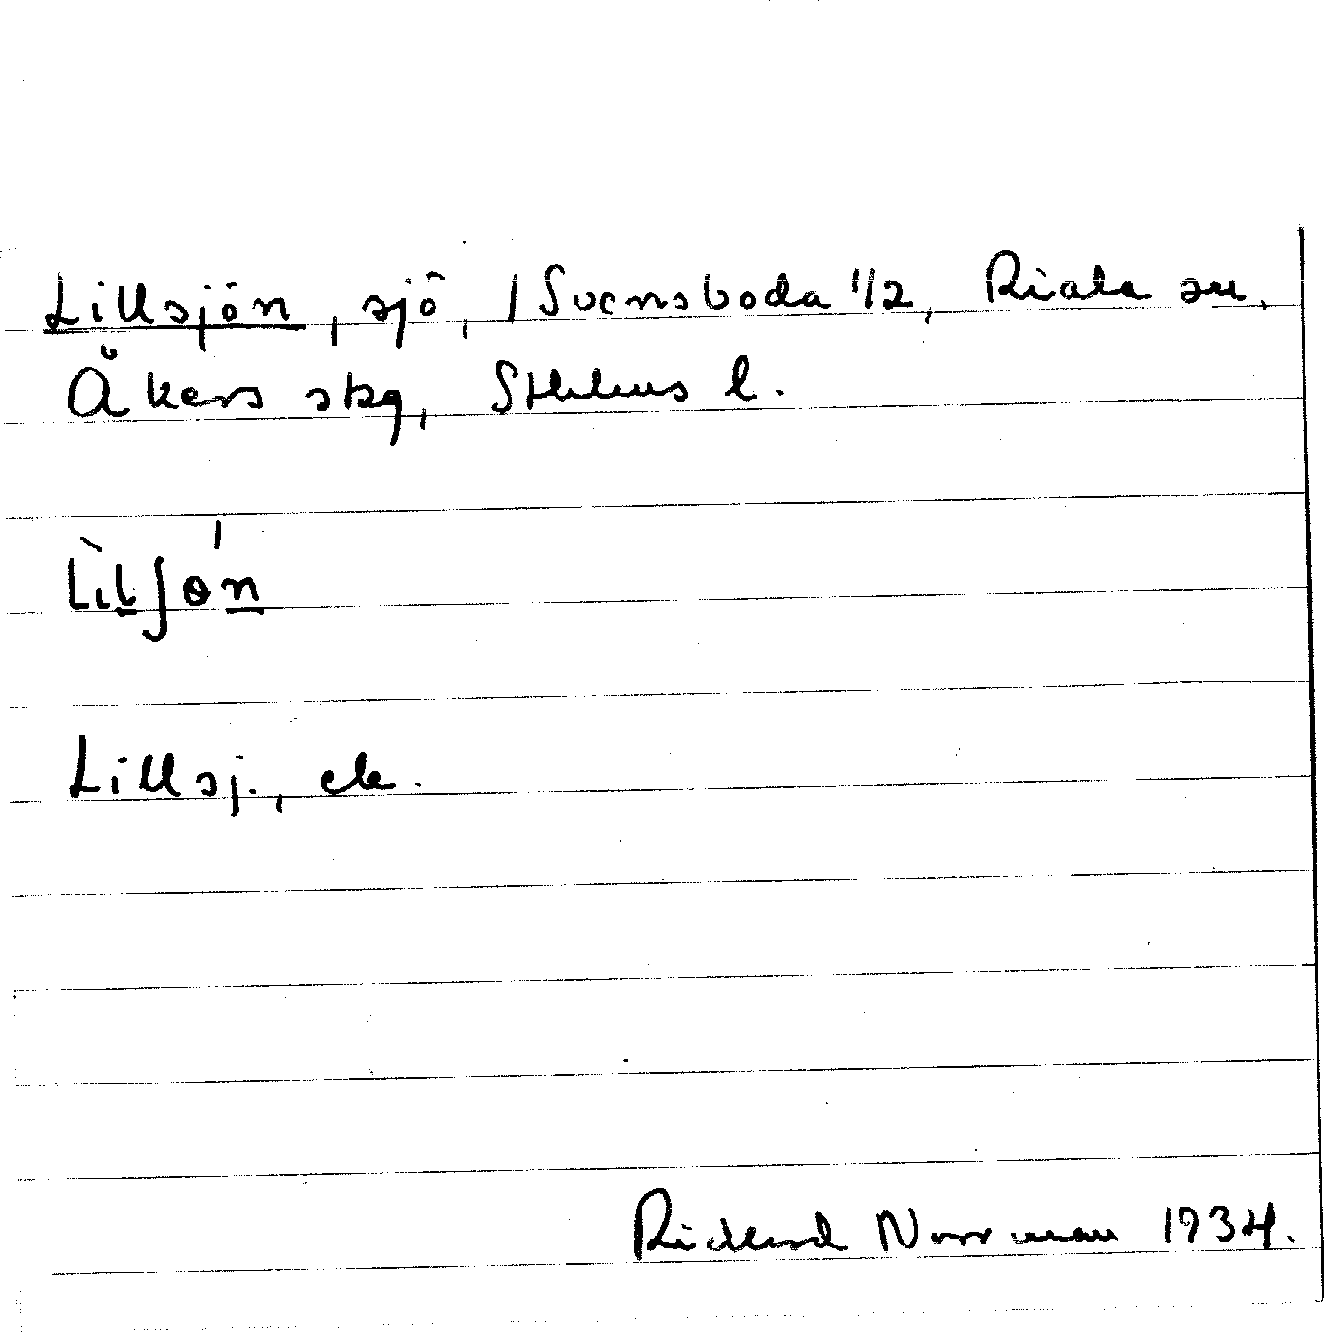 Lillsjön, sjö, / Svensboda 1/2, Riala sn,
Åkers skg, Sthlms l.
Lìlʃǿn
Lillsj., ek.
Rickard Norrman 1934.